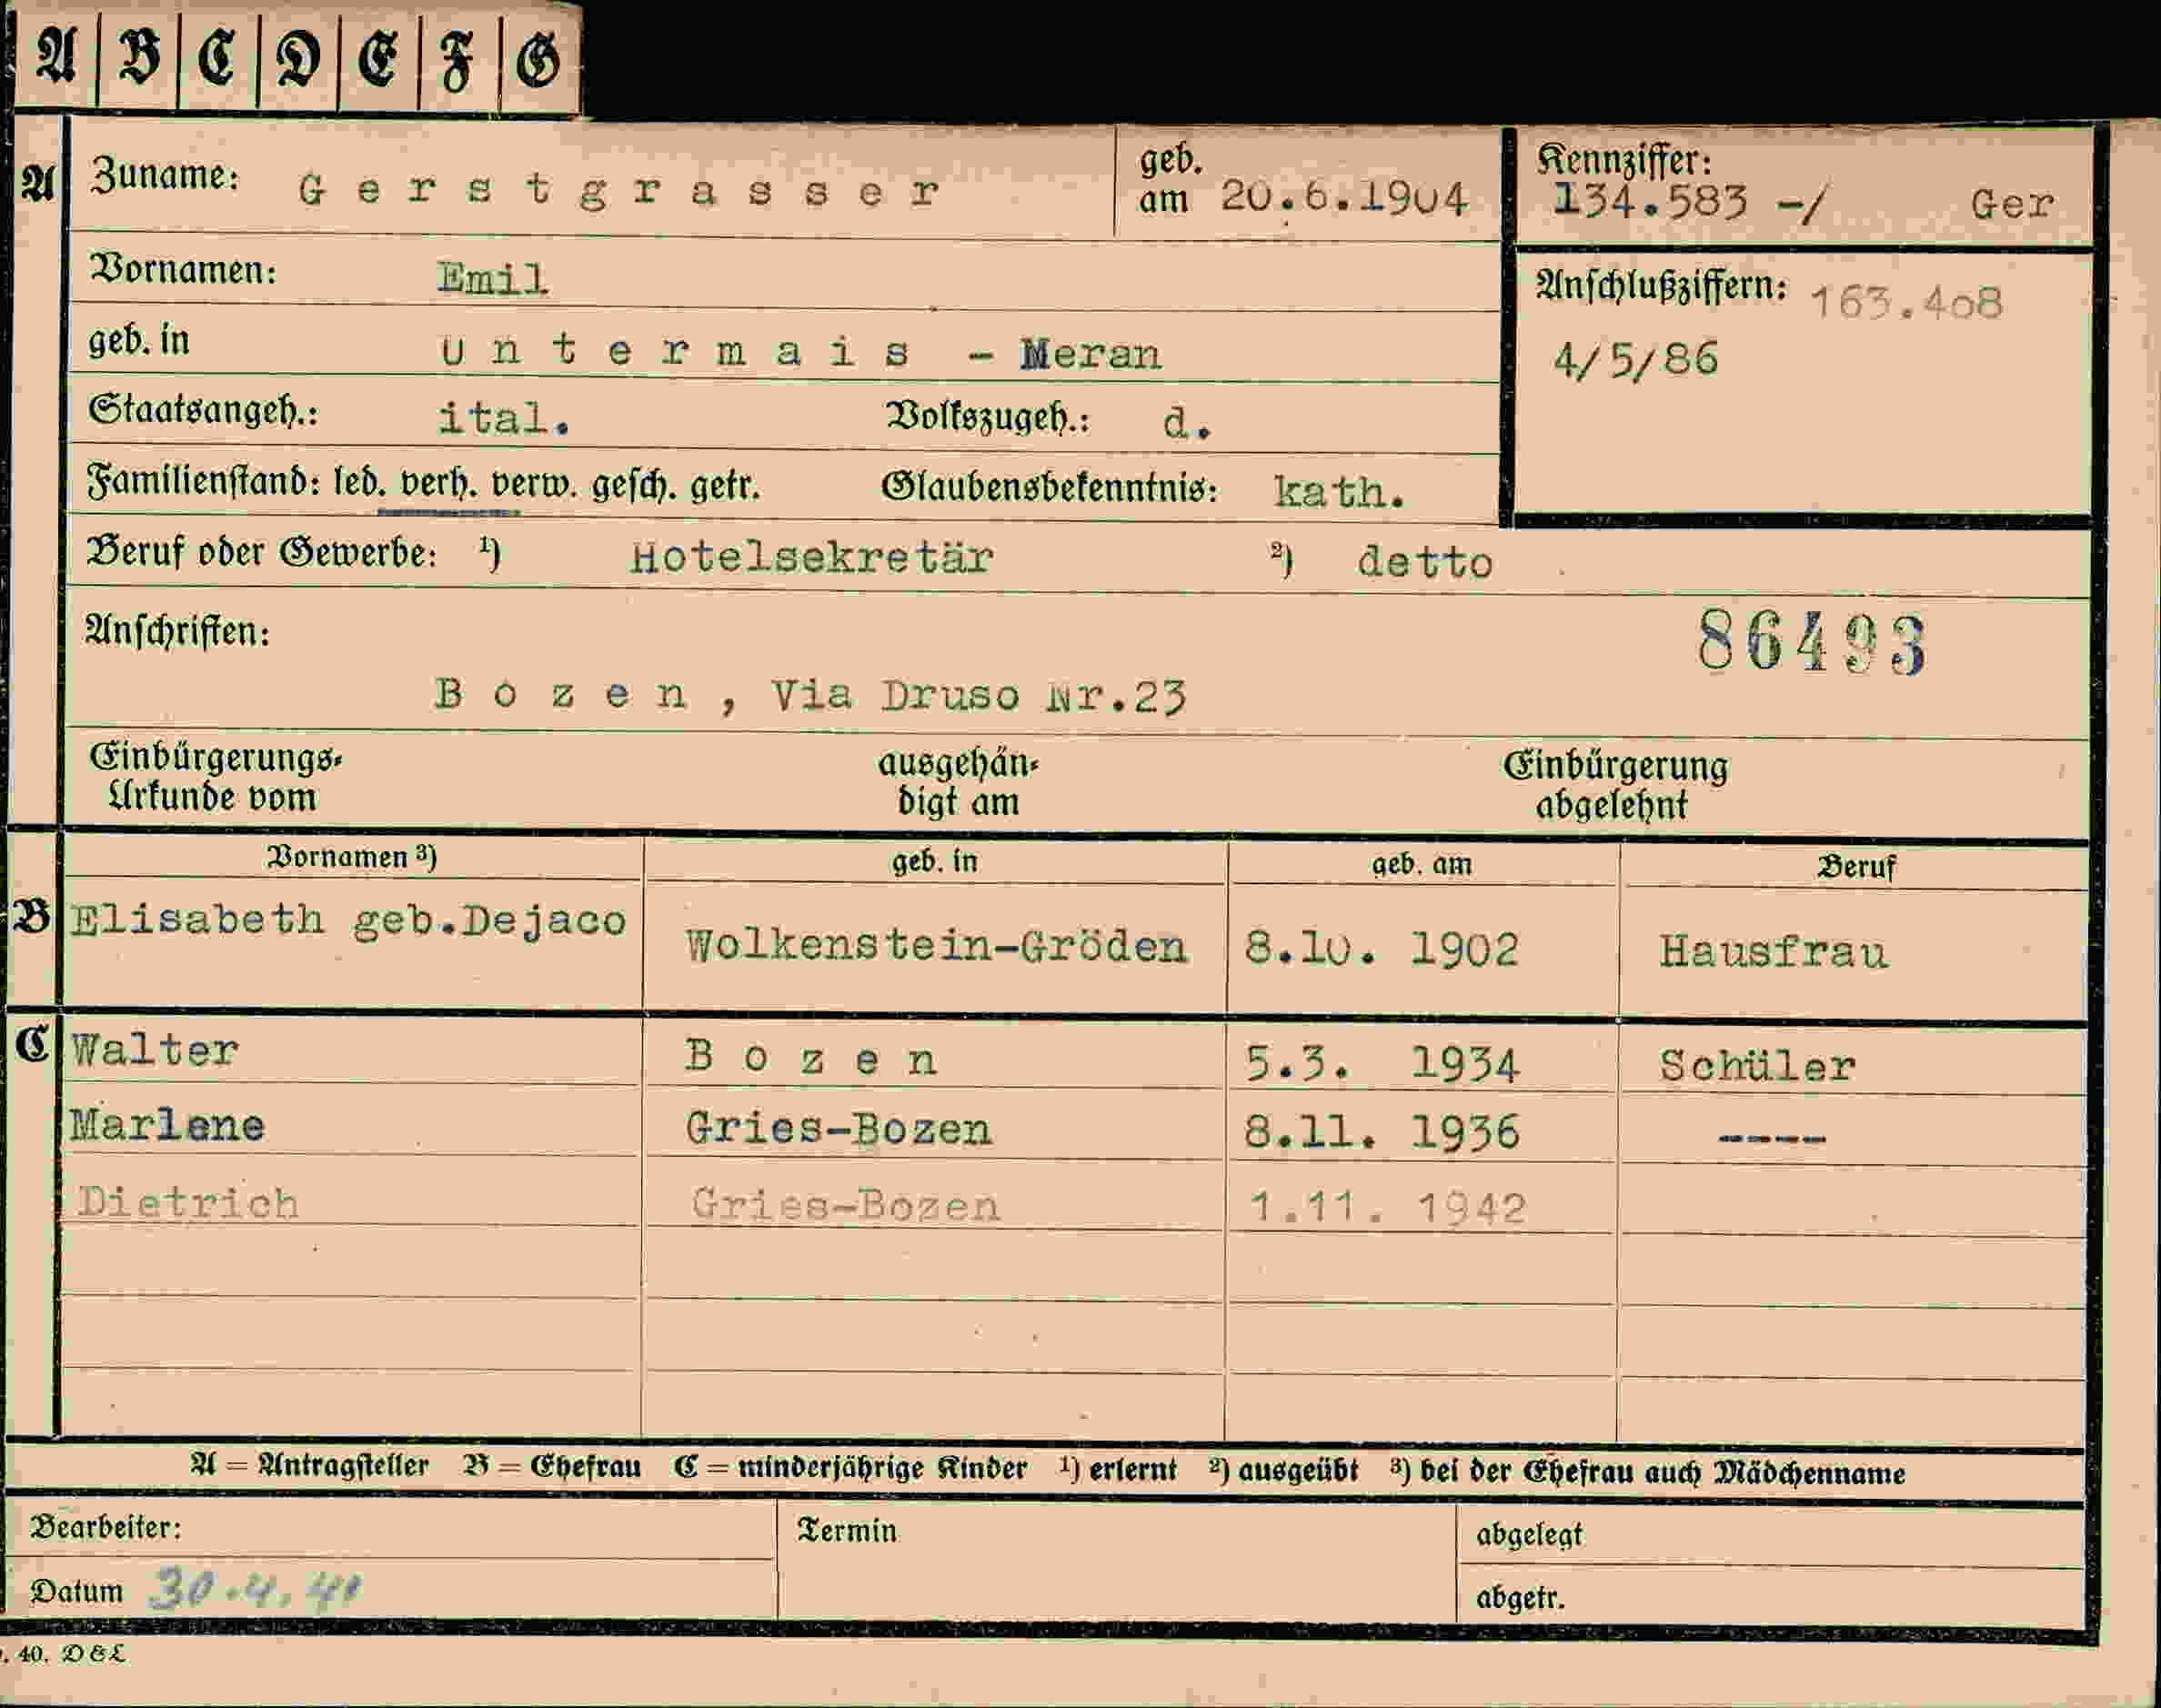 A B C D E F G
A Zuname: Gerstgrasser geb. am 20.6.1904 Kennziffer: 134.583 -/ Ger
Vornamen: Emil Anschlußziffern: 163.408
geb. in Untermais - Meran 4/5/86
Staatsangeh.: ital. Volkszugeh.: d.
Familienstand: led. verh. verw. gesch. getr. Glaubensbekenntnis: kath.
Beruf oder Gewerbe: ¹) Hotelsekretär ²) detto
Anschriften: 86493
Bozen, Via Druso Nr.23
Einbürgerungs- ausgehän- Einbürgerung
Urkunde vom digt am abgelehnt
Vornamen ³) geb. in geb. am Beruf
B Elisabeth geb.Dejaco Wolkenstein-Gröden 8.10. 1902 Hausfrau
C Walter Bozen 5.3. 1934 Schüler
Marlene Gries-Bozen 8.11. 1936 ----
Dietrich Gries-Bozen 1.11. 1942
A = Antragsteller B = Ehefrau C = minderjährige Kinder ¹) erlernt ²) ausgeübt ³) bei der Ehefrau auch Mädchenname
Bearbeiter: Termin abgelegt
Datum 30.4.40 abgetr.
. 40. D&L